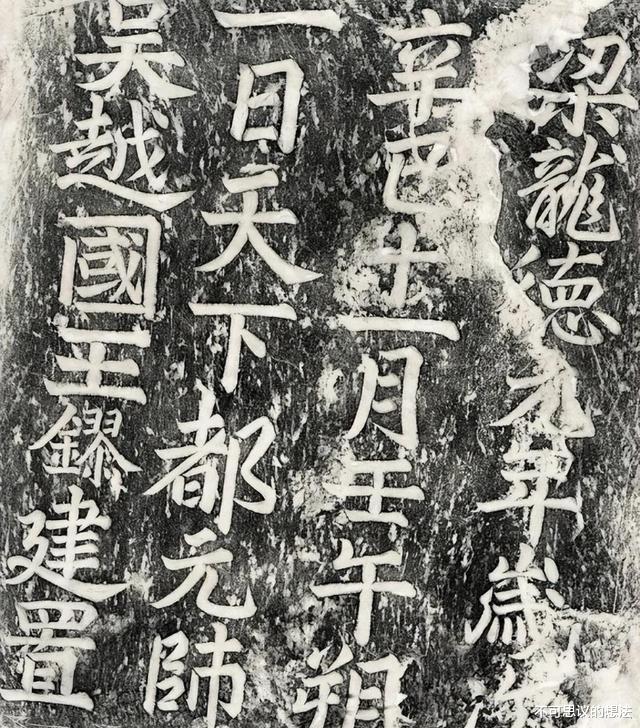 梁龍德元年歲
辛巳十一月壬午朔
一日天下都元帥
吳越國王鏐建置
不可思议的想法